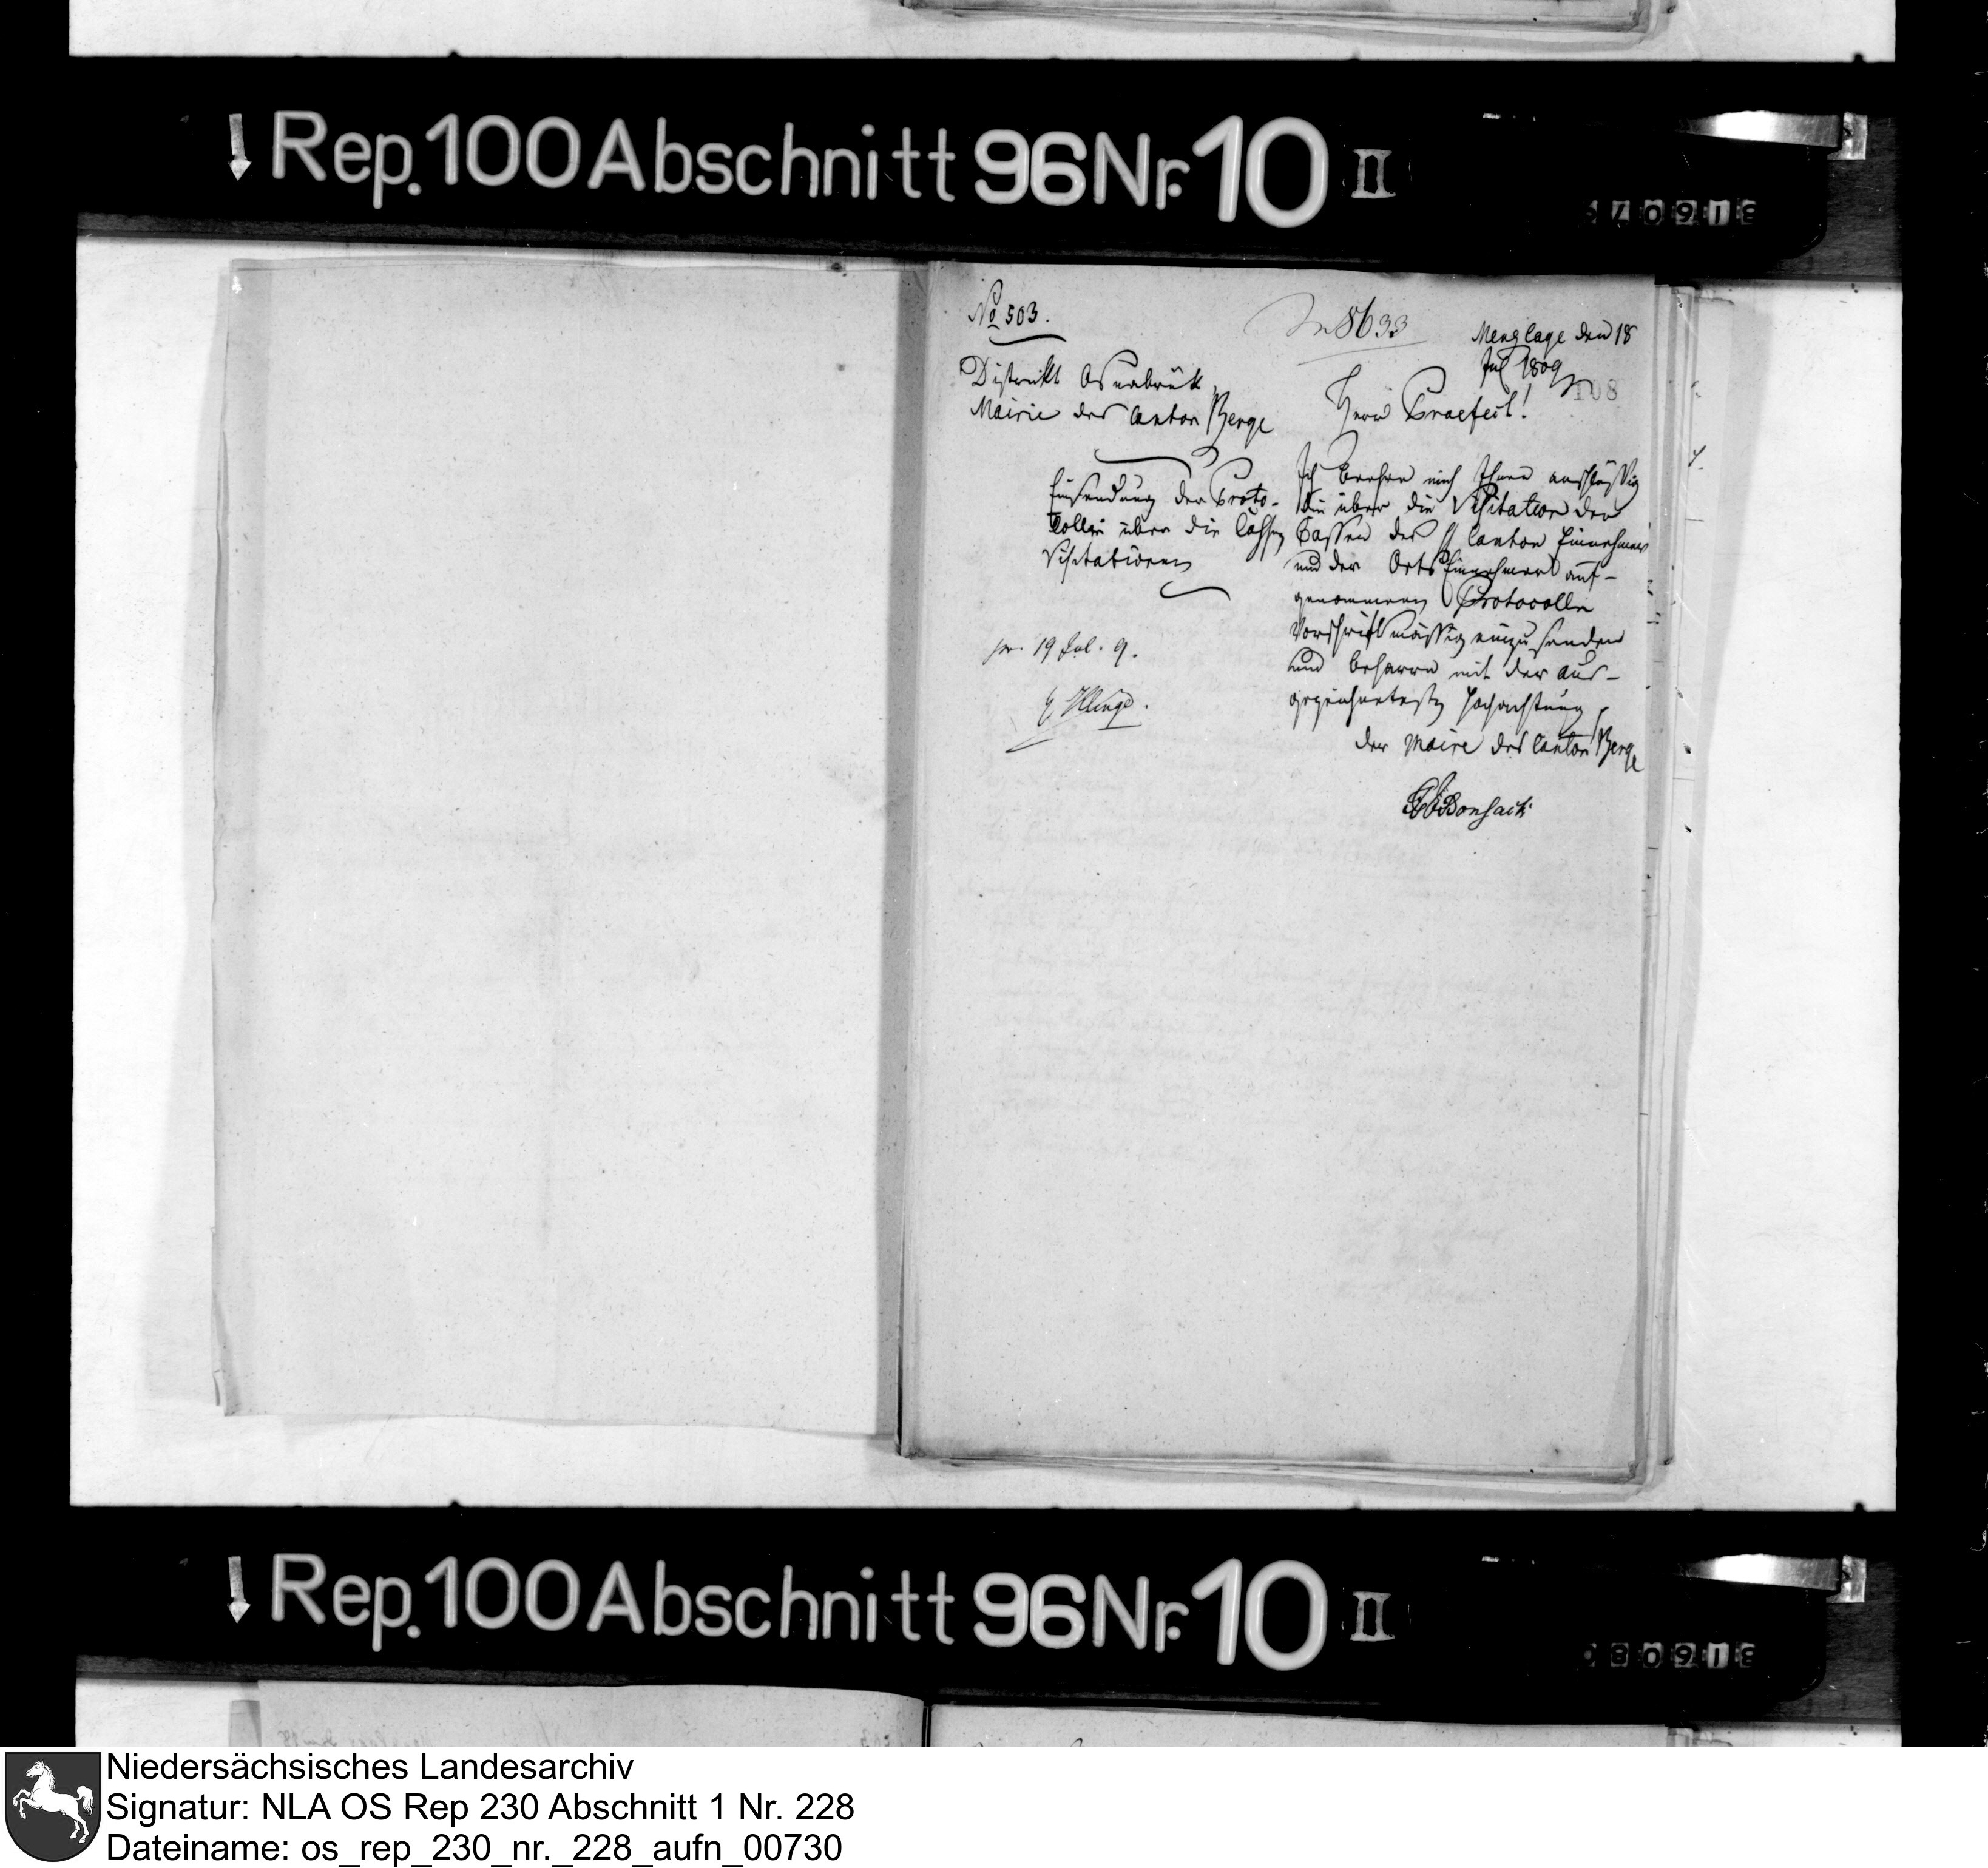 Rep. 100 Abschnitt 96 Nr. 10 II
No 503.
8633
Menslage den 18
Jul 1809
108
Distrikt Osnabrük
Mairie des Canton Berge
Herr Praefect!
Einsendung der Proto-
colle über die Cassen
Visitationen
pr. 19 Jul. 9.
Ich beehre mich Ihnen anschlüssig
die über die Visitation der
Cassen des Canton Einnehmers
und der Orts Einnehmer auf-
genommenen Protocolle
Vorschriftmässig einzusenden
und beharre mit der aus-
gezeichnetesten Hochachtung
der Maire des Canton Berge
Bonsack
Rep. 100 Abschnitt 96 Nr. 10 II
Niedersächsisches Landesarchiv
Signatur: NLA OS Rep 230 Abschnitt 1 Nr. 228
Dateiname: os_rep_230_nr._228_aufn_00730